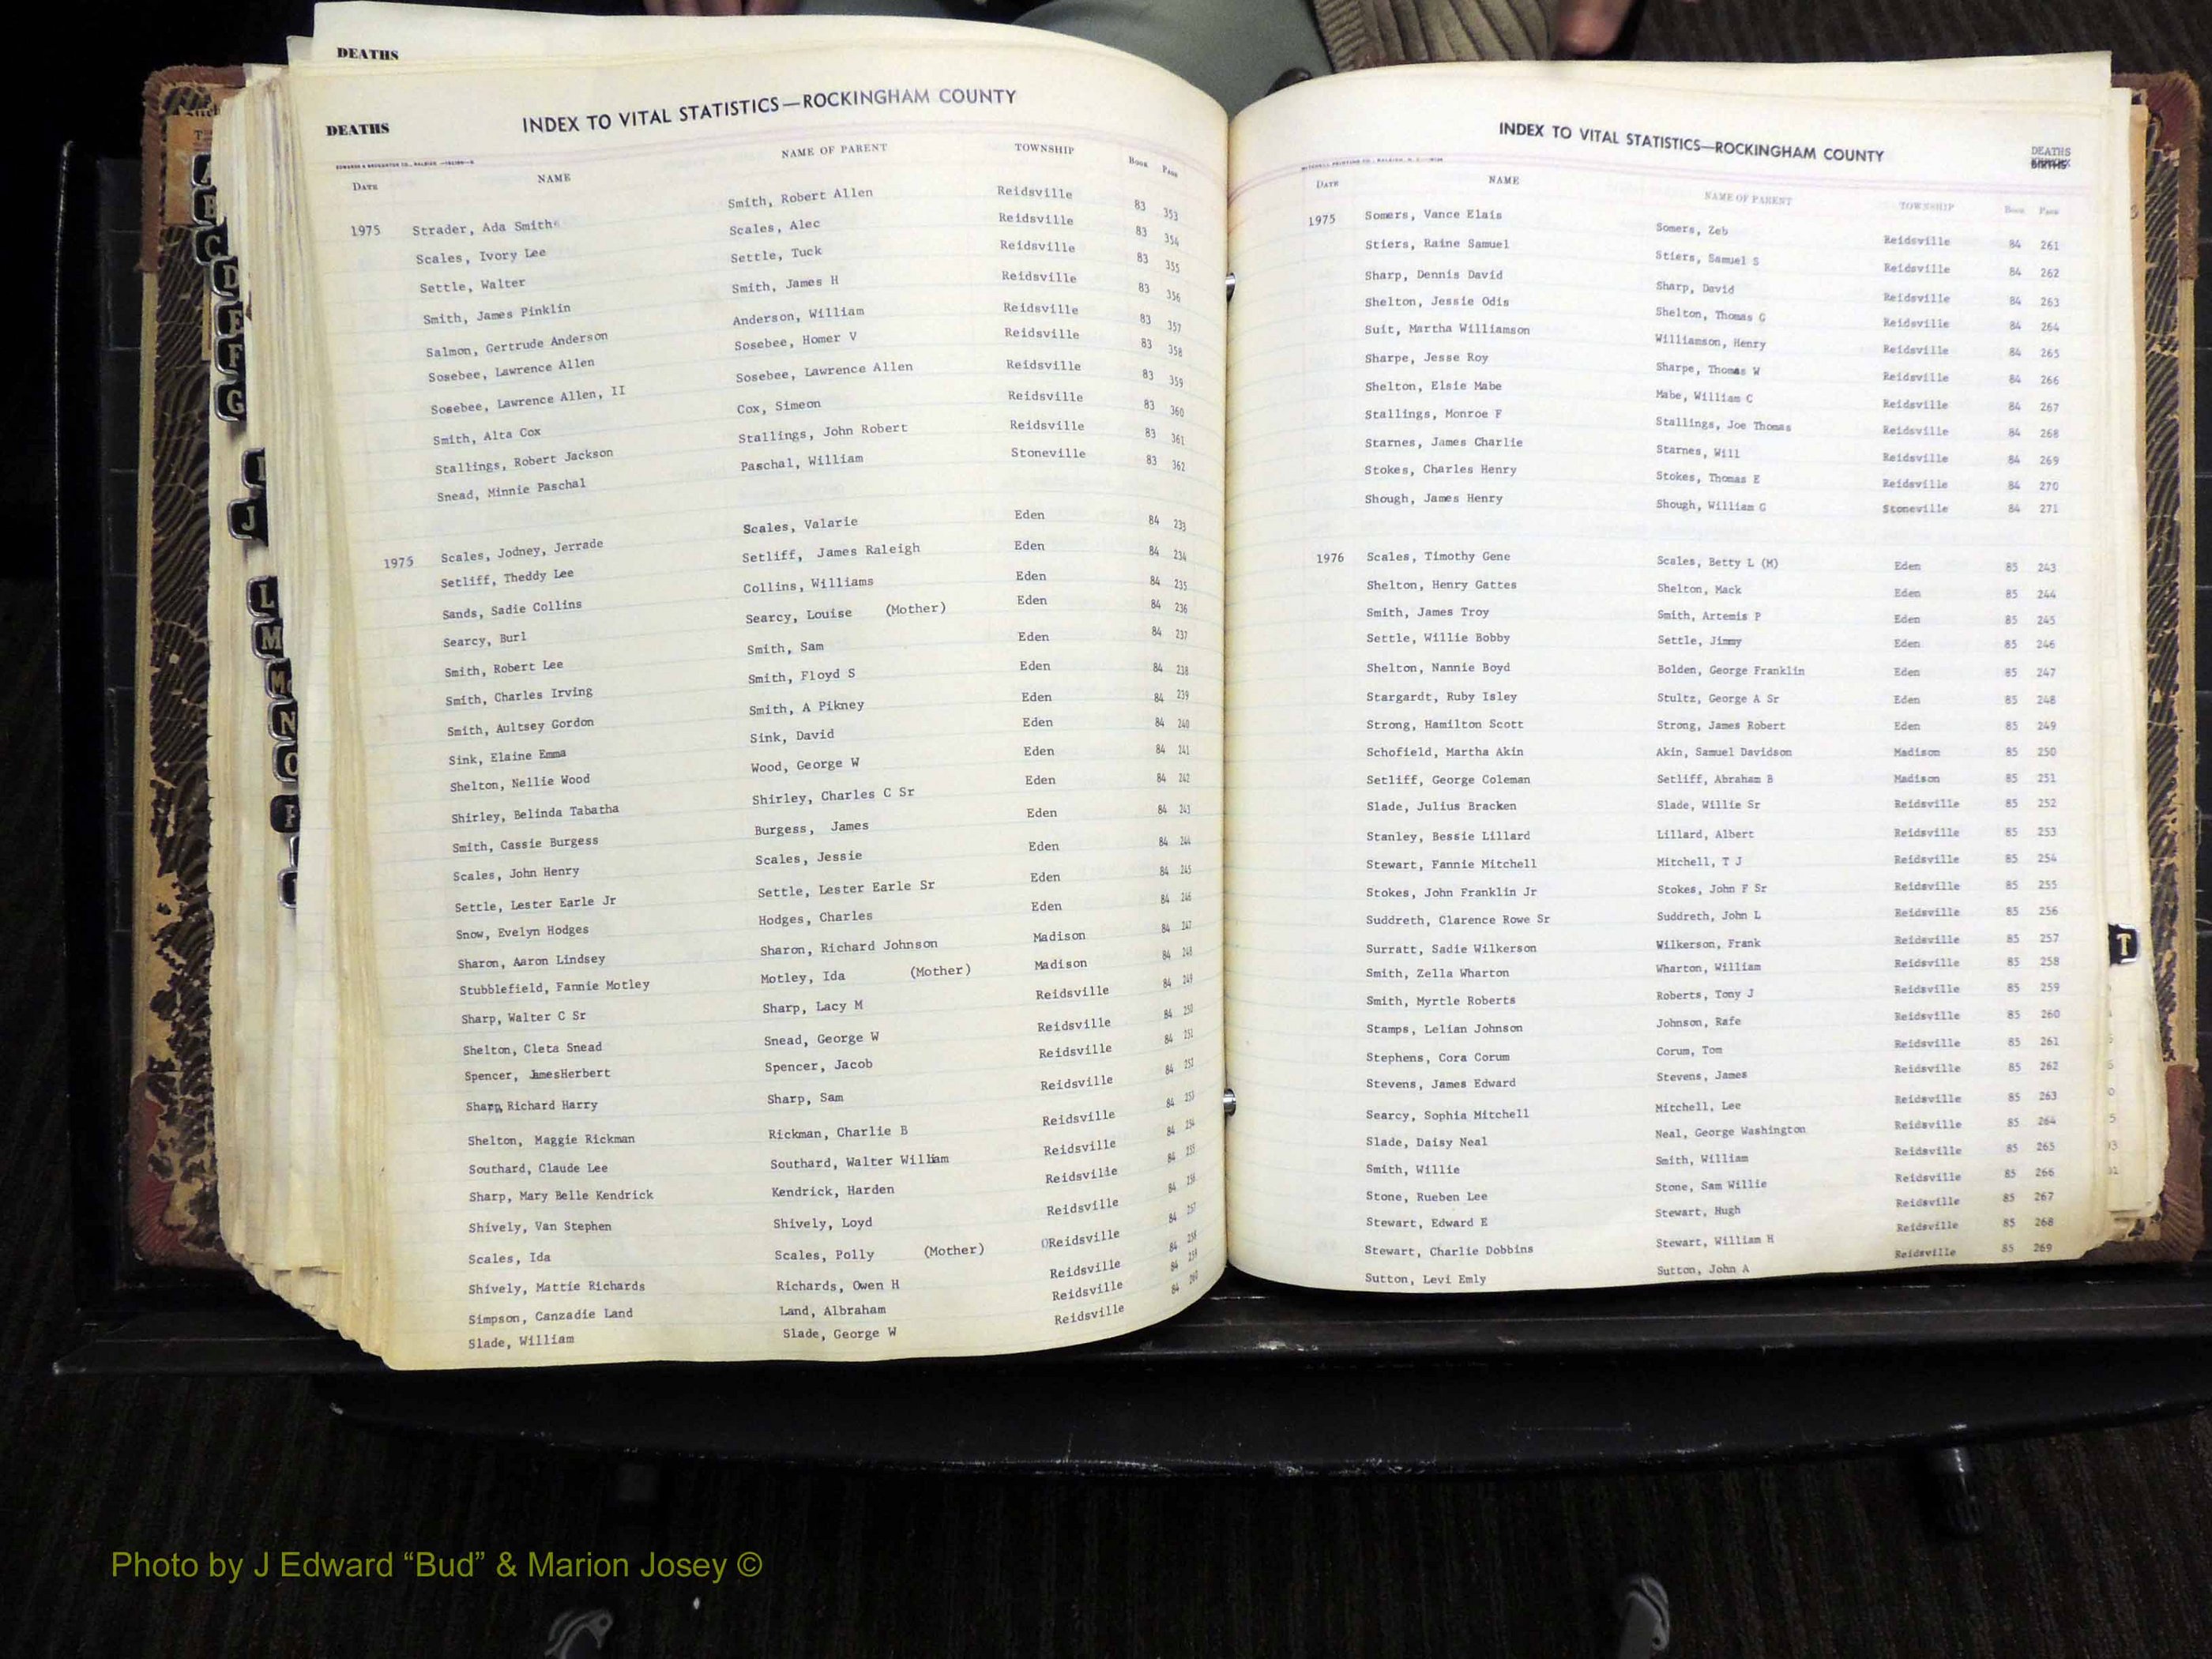 DEATHS
DEATHS
INDEX TO VITAL STATISTICS—ROCKINGHAM COUNTY
DATE NAME NAME OF PARENT TOWNSHIP BOOK PAGE
1975 Strader, Ada Smith Smith, Robert Allen Reidsville 83 353
Scales, Ivory Lee Scales, Alec Reidsville 83 354
Settle, Walter Settle, Tuck Reidsville 83 355
Smith, James Pinklin Smith, James H Reidsville 83 356
Salmon, Gertrude Anderson Anderson, William Reidsville 83 357
Sosebee, Lawrence Allen Sosebee, Homer V Reidsville 83 358
Sosebee, Lawrence Allen, II Sosebee, Lawrence Allen Reidsville 83 359
Smith, Alta Cox Cox, Simeon Reidsville 83 360
Stallings, Robert Jackson Stallings, John Robert Reidsville 83 361
Snead, Minnie Paschal Paschal, William Stoneville 83 362
1975 Scales, Jodney, Jerrade Scales, Valarie Eden 84 233
Setliff, Theddy Lee Setliff, James Raleigh Eden 84 234
Sands, Sadie Collins Collins, Williams Eden 84 235
Searcy, Burl Searcy, Louise (Mother) Eden 84 236
Smith, Robert Lee Smith, Sam Eden 84 237
Smith, Charles Irving Smith, Floyd S Eden 84 238
Smith, Aultsey Gordon Smith, A Pikney Eden 84 239
Sink, Elaine Emma Sink, David Eden 84 240
Shelton, Nellie Wood Wood, George W Eden 84 241
Shirley, Belinda Tabatha Shirley, Charles C Sr Eden 84 242
Smith, Cassie Burgess Burgess, James Eden 84 243
Scales, John Henry Scales, Jessie Eden 84 244
Settle, Lester Earle Jr Settle, Lester Earle Sr Eden 84 245
Snow, Evelyn Hodges Hodges, Charles Eden 84 246
Sharon, Aaron Lindsey Sharon, Richard Johnson Madison 84 247
Stubblefield, Fannie Motley Motley, Ida (Mother) Madison 84 248
Sharp, Walter C Sr Sharp, Lacy M Reidsville 84 249
Shelton, Cleta Snead Snead, George W Reidsville 84 250
Spencer, JamesHerbert Spencer, Jacob Reidsville 84 251
Sharp, Richard Harry Sharp, Sam Reidsville 84 252
Shelton, Maggie Rickman Rickman, Charlie B Reidsville 84 253
Southard, Claude Lee Southard, Walter William Reidsville 84 254
Sharp, Mary Belle Kendrick Kendrick, Harden Reidsville 84 255
Shively, Van Stephen Shively, Loyd Reidsville 84 256
Scales, Ida Scales, Polly (Mother) Reidsville 84 257
Shively, Mattie Richards Richards, Owen H Reidsville 84 258
Simpson, Canzadie Land Land, Albraham Reidsville 84 259
Slade, William Slade, George W Reidsville 84 260
INDEX TO VITAL STATISTICS—ROCKINGHAM COUNTY
DEATHS
BIRTHS
DATE NAME NAME OF PARENT TOWNSHIP Book Page
1975 Somers, Vance Elais Somers, Zeb Reidsville 84 261
Stiers, Raine Samuel Stiers, Samuel S Reidsville 84 262
Sharp, Dennis David Sharp, David Reidsville 84 263
Shelton, Jessie Odis Shelton, Thomas G Reidsville 84 264
Suit, Martha Williamson Williamson, Henry Reidsville 84 265
Sharpe, Jesse Roy Sharpe, Thomas W Reidsville 84 266
Shelton, Elsie Mabe Mabe, William C Reidsville 84 267
Stallings, Monroe F Stallings, Joe Thomas Reidsville 84 268
Starnes, James Charlie Starnes, Will Reidsville 84 269
Stokes, Charles Henry Stokes, Thomas E Reidsville 84 270
Shough, James Henry Shough, William G Stoneville 84 271
1976 Scales, Timothy Gene Scales, Betty L (M) Eden 85 243
Shelton, Henry Gattes Shelton, Mack Eden 85 244
Smith, James Troy Smith, Artemis P Eden 85 245
Settle, Willie Bobby Settle, Jimmy Eden 85 246
Shelton, Nannie Boyd Bolden, George Franklin Eden 85 247
Stargardt, Ruby Isley Stultz, George A Sr Eden 85 248
Strong, Hamilton Scott Strong, James Robert Eden 85 249
Schofield, Martha Akin Akin, Samuel Davidson Madison 85 250
Setliff, George Coleman Setliff, Abraham B Madison 85 251
Slade, Julius Bracken Slade, Willie Sr Reidsville 85 252
Stanley, Bessie Lillard Lillard, Albert Reidsville 85 253
Stewart, Fannie Mitchell Mitchell, T J Reidsville 85 254
Stokes, John Franklin Jr Stokes, John F Sr Reidsville 85 255
Suddreth, Clarence Rowe Sr Suddreth, John L Reidsville 85 256
Surratt, Sadie Wilkerson Wilkerson, Frank Reidsville 85 257
Smith, Zella Wharton Wharton, William Reidsville 85 258
Smith, Myrtle Roberts Roberts, Tony J Reidsville 85 259
Stamps, Lelian Johnson Johnson, Rafe Reidsville 85 260
Stephens, Cora Corum Corum, Tom Reidsville 85 261
Stevens, James Edward Stevens, James Reidsville 85 262
Searcy, Sophia Mitchell Mitchell, Lee Reidsville 85 263
Slade, Daisy Neal Neal, George Washington Reidsville 85 264
Smith, Willie Smith, William Reidsville 85 265
Stone, Rueben Lee Stone, Sam Willie Reidsville 85 266
Stewart, Edward E Stewart, Hugh Reidsville 85 267
Stewart, Charlie Dobbins Stewart, William H Reidsville 85 268
Sutton, Levi Emly Sutton, John A Reidsville 85 269
A
B
C
D
E
F
G
I
J
L
M
Mc
N
O
P
T
Photo by J Edward “Bud” & Marion Josey ©